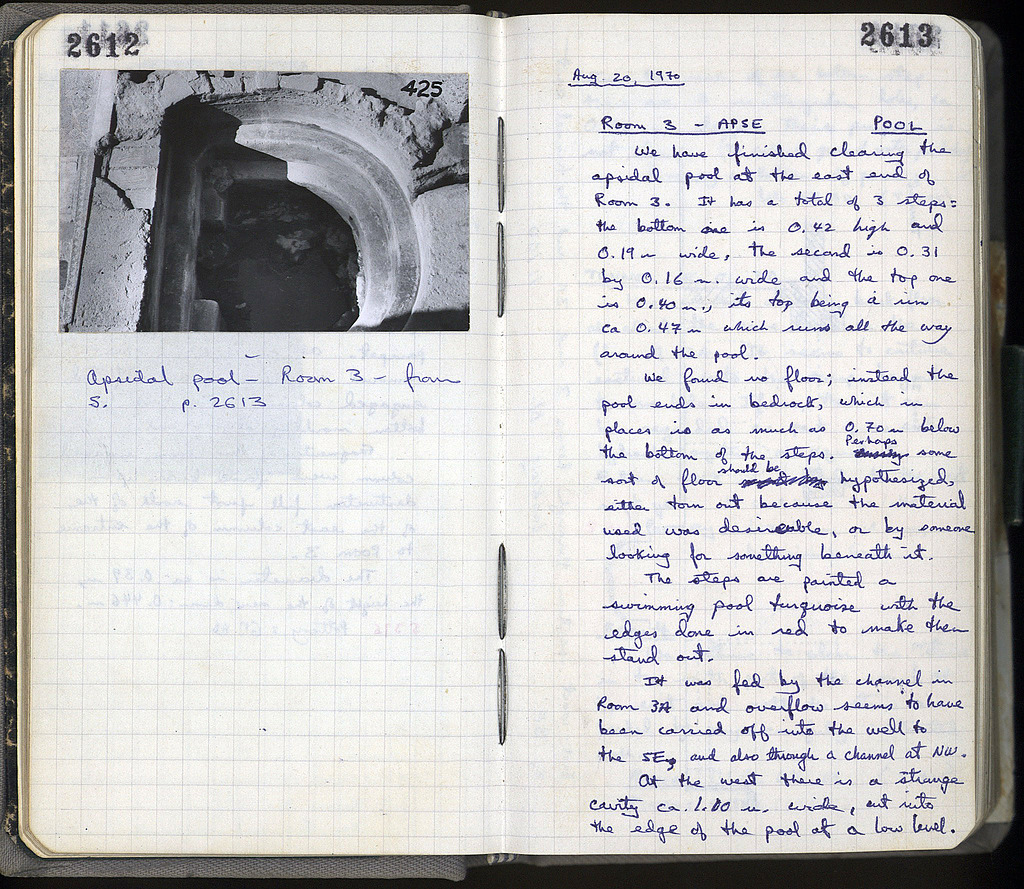 2612
425
Apsidal pool – Room 3 – from
S. p. 2613
2613
Aug. 20, 1970
Room 3 – APSE POOL
We have finished clearing the
apsidal pool at the east end of
Room 3. It has a total of 3 steps:
the bottom one is 0.42 high and
0.19 m wide, the second is 0.31
by 0.16 m. wide and the top one
is 0.40 m., its top being a rim
ca 0.47 m which runs all the way
around the pool.
We found no floor; instead the
pool ends in bedrock, which in
places is as much as 0.70 m below
the bottom of the steps. Perhaps some
sort of floor should be hypothesized,
either torn out because the material
used was desirable, or by someone
looking for something beneath it.
The steps are painted a
swimming pool turquoise with the
edges done in red to make them
stand out.
It was fed by the channel in
Room 3A and overflow seems to have
been carried off into the well to
the SE, and also through a channel at NW.
At the west there is a strange
cavity ca. 1.00 m. wide, cut into
the edge of the pool at a low level.